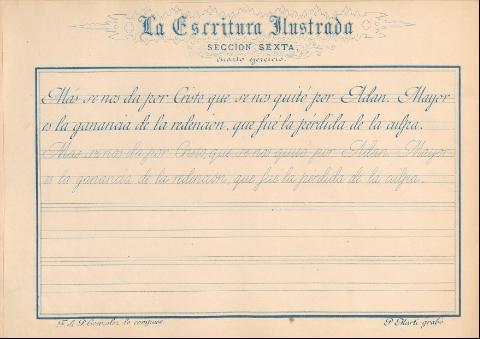 La Escritura Ilustrada
SECCIÓN SEXTA
cuarto ejercicio.
Más se nos da por Cristo, que se nos quitó por Adan. Mayor
es la ganancia de la redencion, que fué la pérdida de la culpa.
Más se nos da por Cristo, que se nos quitó por Adan. Mayor
es la ganancia de la redencion, que fué la pérdida de la culpa.
F. de P. Gonzalez lo compuso
P. Marti grabó